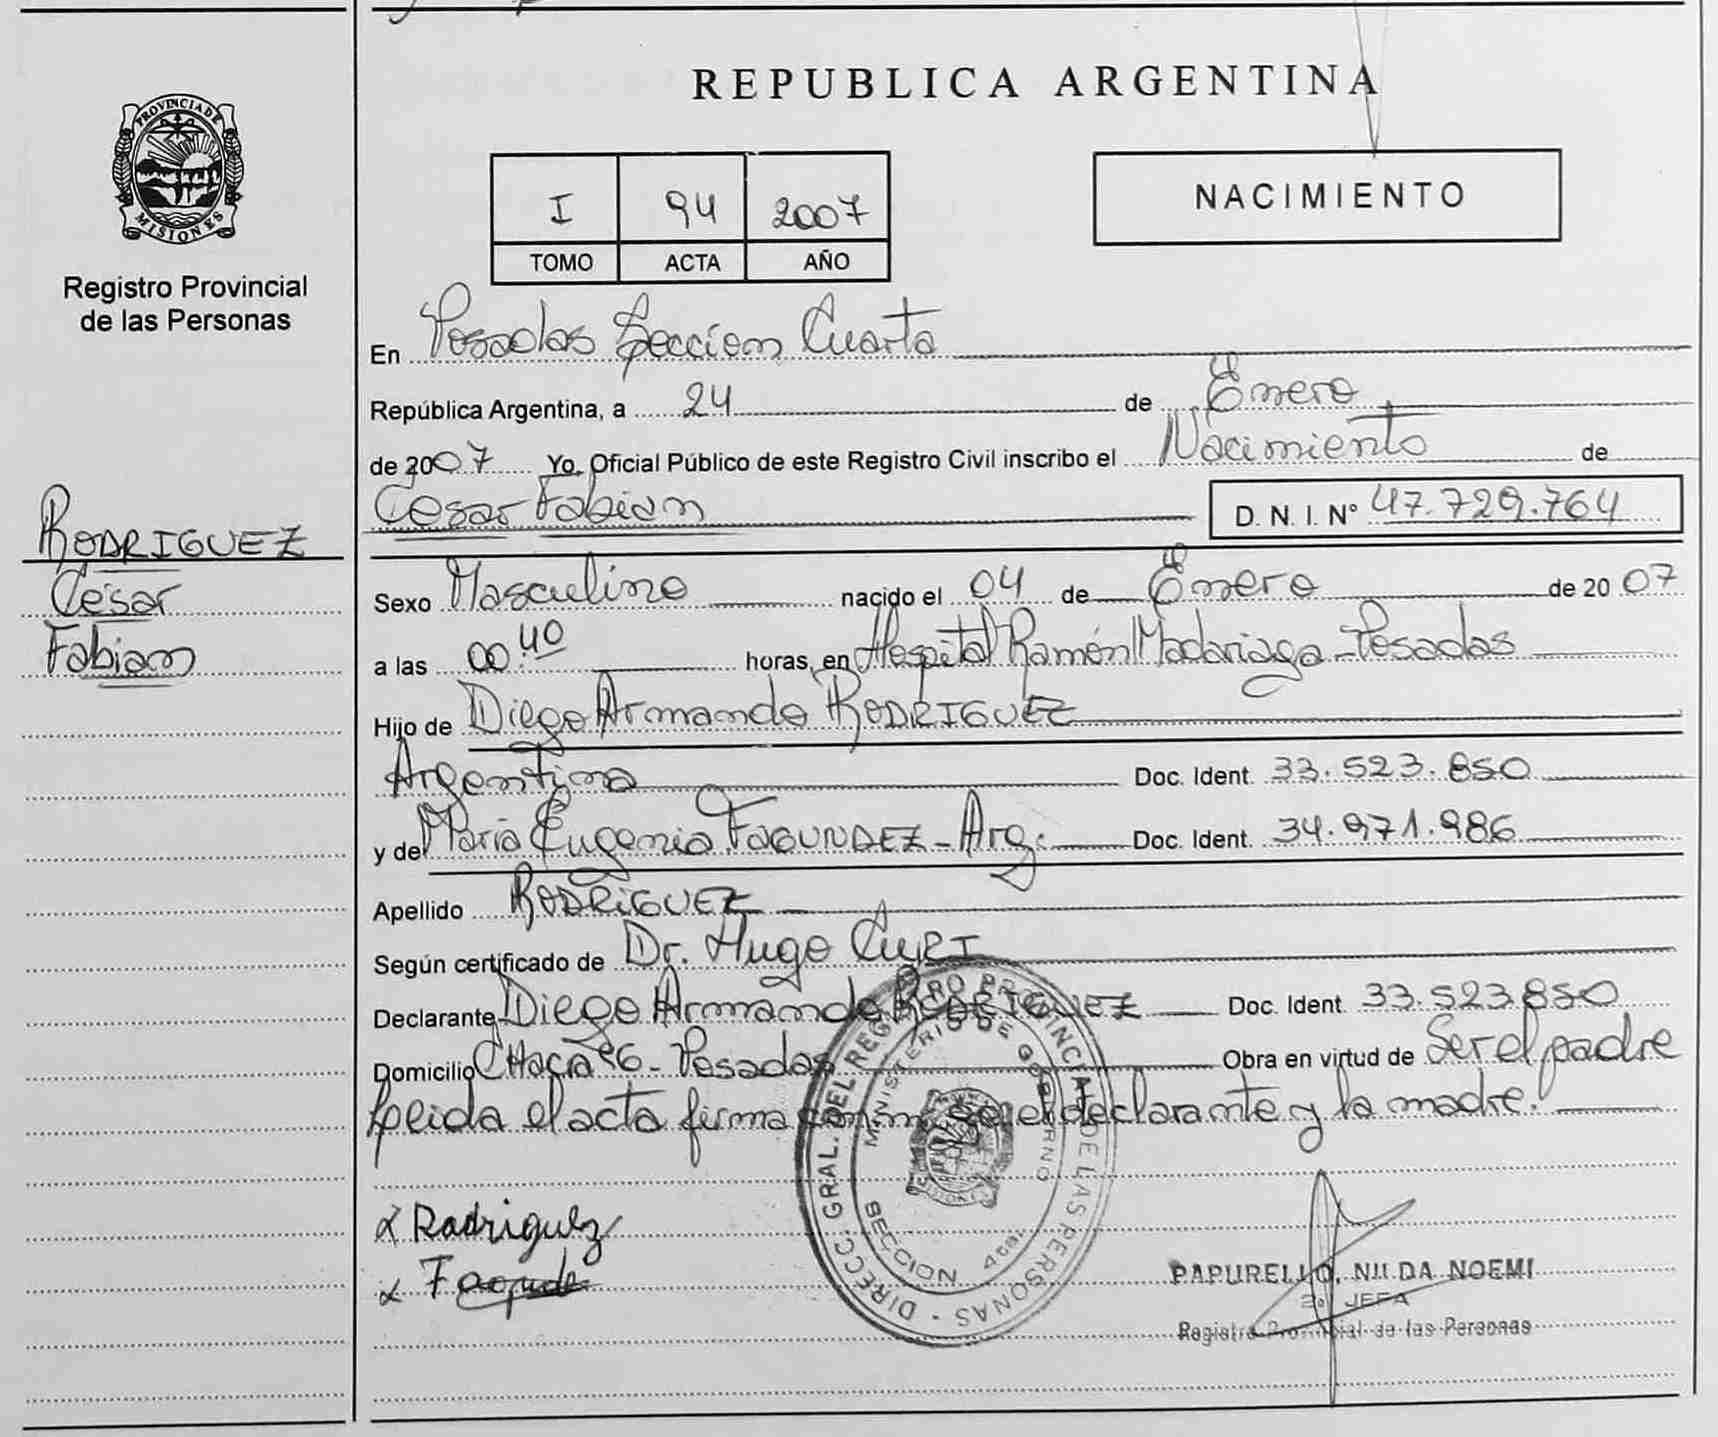 REPUBLICA ARGENTINA
PROVINCIA DE
MISIONES
Registro Provincial
de las Personas
I 94 2007
TOMO ACTA AÑO
NACIMIENTO
En Posadas Sección Cuarta
República Argentina, a 24 de Enero
de 2007 Yo, Oficial Público de este Registro Civil inscribo el Nacimiento de
Cesar Fabian D. N. I. Nº 47.729.764
RODRIGUEZ
César
Fabian
Sexo Masculino nacido el 04 de Enero de 2007
a las 00:40 horas, en Hospital Ramón Madariaga - Posadas
Hijo de Diego Armando RODRIGUEZ
Argentino Doc. Ident. 33.523.850
y de Maria Eugenia FAGUNDEZ - Arg. Doc. Ident. 34.971.986
Apellido RODRIGUEZ
Según certificado de Dr. Hugo CURI
Declarante Diego Armando RODRIGUEZ Doc. Ident. 33.523.850
Domicilio CHacra 96 - Posadas Obra en virtud de Ser el padre
Leida el acta firma conmigo el declarante y la madre.
DIRECC. GRAL. DEL REGISTRO PROVINCIAL DE LAS PERSONAS
MINISTERIO DE GOBIERNO
MISIONES
SECCION 4ta.
Rodriguez
PAPURELLO, NILDA NOEMI
2º JEFA
Registro Provincial de las Personas